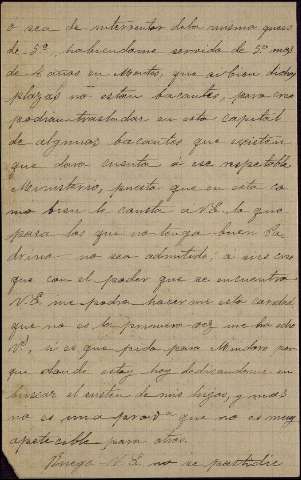 o sea de interventor de la misma quiero
de 5º, habiendome servido de 5º mas
de 4 años en Montes, que si bien dichas
plazas no estan bacantes, para eso
podrian trasladar en esta capital
de algunas bacantes que existen
que dara cuenta a ese respetable
Ministerio, puesto que en esta co
mo bien le consta a V.E. lo que
pasa los que no tenga buen Pa
drino no sea admitido; a mi creo
que con el poder que se encuentra
V.E. me podia hacerme esta caridad
que no es la primera vez me ha echo
Vª, si es que pido para Mindoro por
que donde estoy hoy dedicandome en
buscar el susten de mis hijos, y mas
no es una prov.ª que no es muy
apetecible para otros.
Ruego V.E. no se